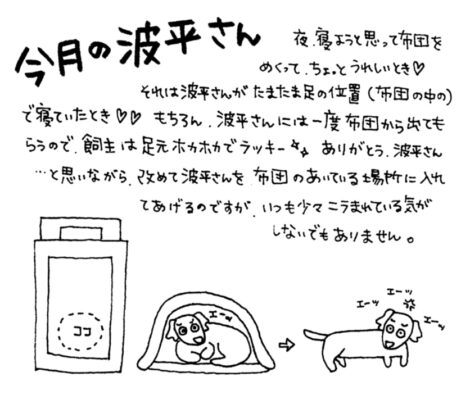 今月の波平さん
夜、寝ようと思って布団を
めくって、ちょっとうれしいとき♡
それは波平さんがたまたま足の位置(布団の中の)
で寝ていたとき♡♡ もちろん、波平さんには一度布団から出ても
らうので、飼主は足元ホカホカでラッキー ありがとう、波平さん
…と思いながら、改めて波平さんを布団のあいている場所に入れ
てあげるのですが、いつも少々ニラまれている気が
しないでもありません。
ココ
エーッ
エーッ
エーッ
エーッ